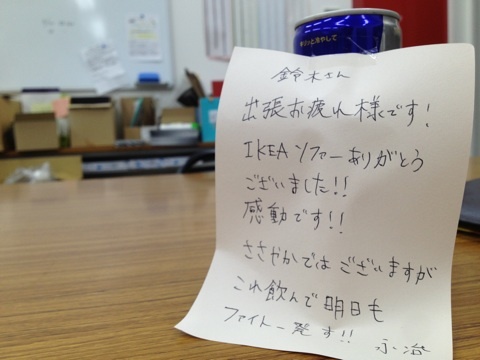 鈴木さん
出張お疲れ様です!
IKEAソファーありがとう
ございました!!
感動です!!
ささやかではございますが
これ飲んで明日も
ファイト一発す!!
永治